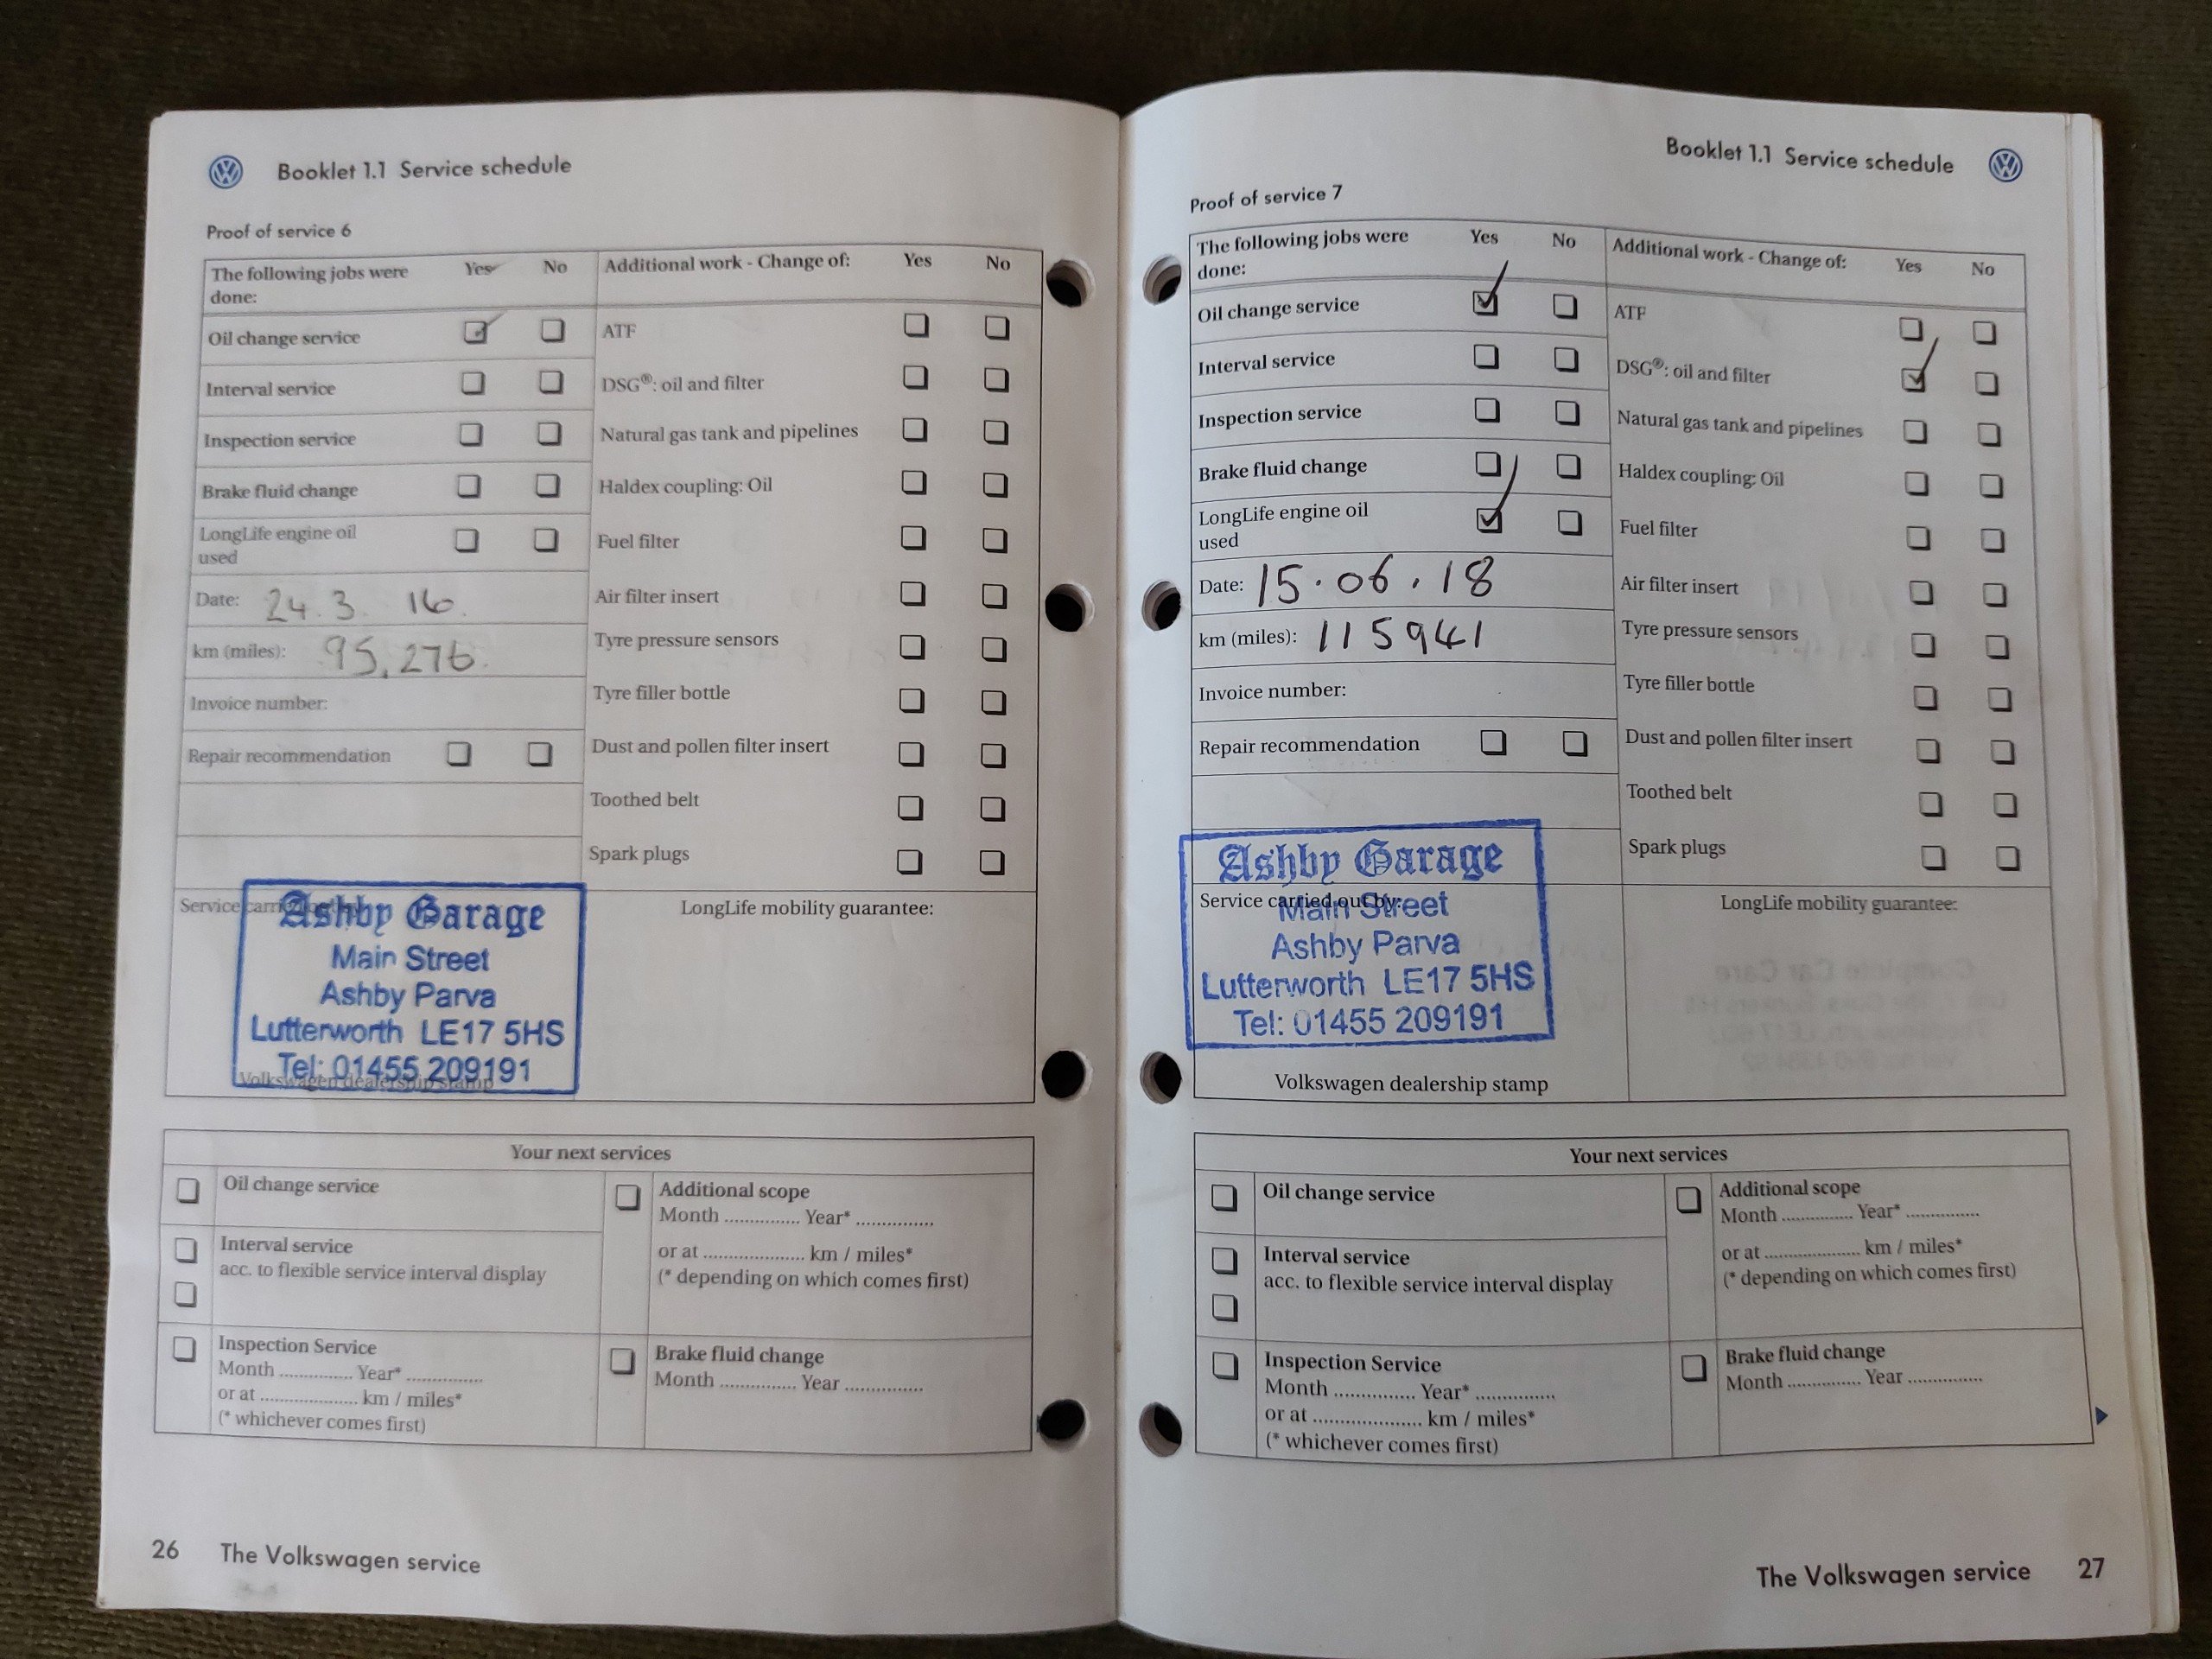 Booklet 1.1 Service schedule
Proof of service 6
The following jobs were done: Yes No
Oil change service
Interval service
Inspection service
Brake fluid change
LongLife engine oil used
Date: 24.3 16.
km (miles): 95,276.
Invoice number:
Repair recommendation
Additional work - Change of: Yes No
ATF
DSG®: oil and filter
Natural gas tank and pipelines
Haldex coupling: Oil
Fuel filter
Air filter insert
Tyre pressure sensors
Tyre filler bottle
Dust and pollen filter insert
Toothed belt
Spark plugs
Service carried out by:
Ashby Garage
Main Street
Ashby Parva
Lutterworth LE17 5HS
Tel: 01455 209191
Volkswagen dealership stamp
LongLife mobility guarantee:
Your next services
Oil change service
Interval service
acc. to flexible service interval display
Inspection Service
Month .............. Year* ..............
or at .................... km / miles*
(* whichever comes first)
Additional scope
Month .............. Year* ..............
or at .................... km / miles*
(* depending on which comes first)
Brake fluid change
Month .............. Year ..............
26 The Volkswagen service
Booklet 1.1 Service schedule
Proof of service 7
The following jobs were done: Yes No
Oil change service
Interval service
Inspection service
Brake fluid change
LongLife engine oil used
Date: 15.06.18
km (miles): 115941
Invoice number:
Repair recommendation
Additional work - Change of: Yes No
ATF
DSG®: oil and filter
Natural gas tank and pipelines
Haldex coupling: Oil
Fuel filter
Air filter insert
Tyre pressure sensors
Tyre filler bottle
Dust and pollen filter insert
Toothed belt
Spark plugs
Ashby Garage
Service carried out by:
Main Street
Ashby Parva
Lutterworth LE17 5HS
Tel: 01455 209191
Volkswagen dealership stamp
LongLife mobility guarantee:
Your next services
Oil change service
Interval service
acc. to flexible service interval display
Inspection Service
Month .............. Year* ..............
or at .................... km / miles*
(* whichever comes first)
Additional scope
Month .............. Year* ..............
or at .................... km / miles*
(* depending on which comes first)
Brake fluid change
Month .............. Year ..............
The Volkswagen service 27